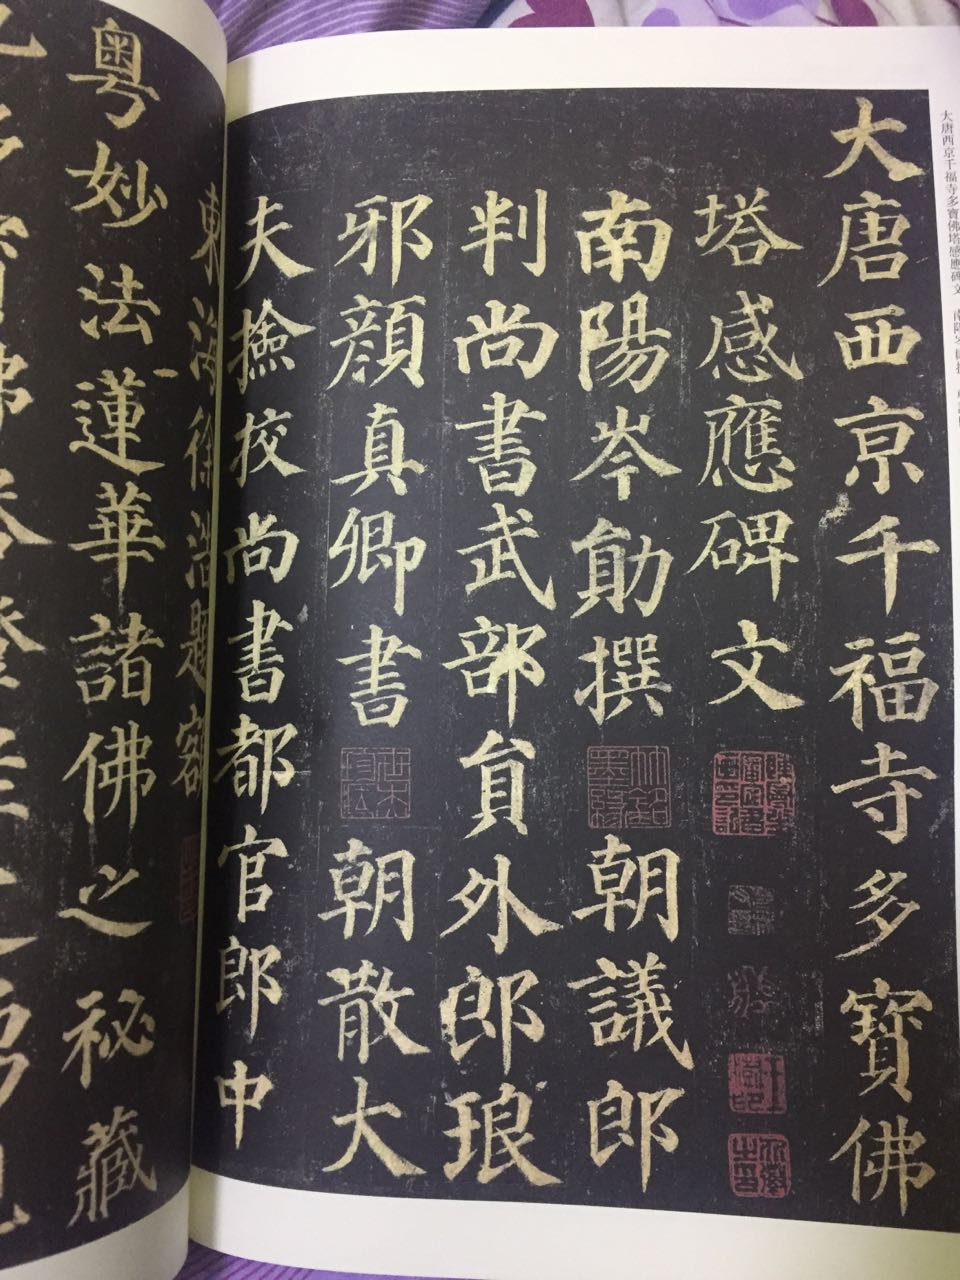 大唐西京千福寺多寶佛塔感應碑文
大唐西京千福寺多寶佛
塔感應碑文
南陽岑勛撰 朝議郎
判尚書武部貟外郎琅
邪顔真卿書 朝散大
夫撿挍尚書都官郎中
東海徐浩題額
粤妙法蓮華諸佛之秘藏